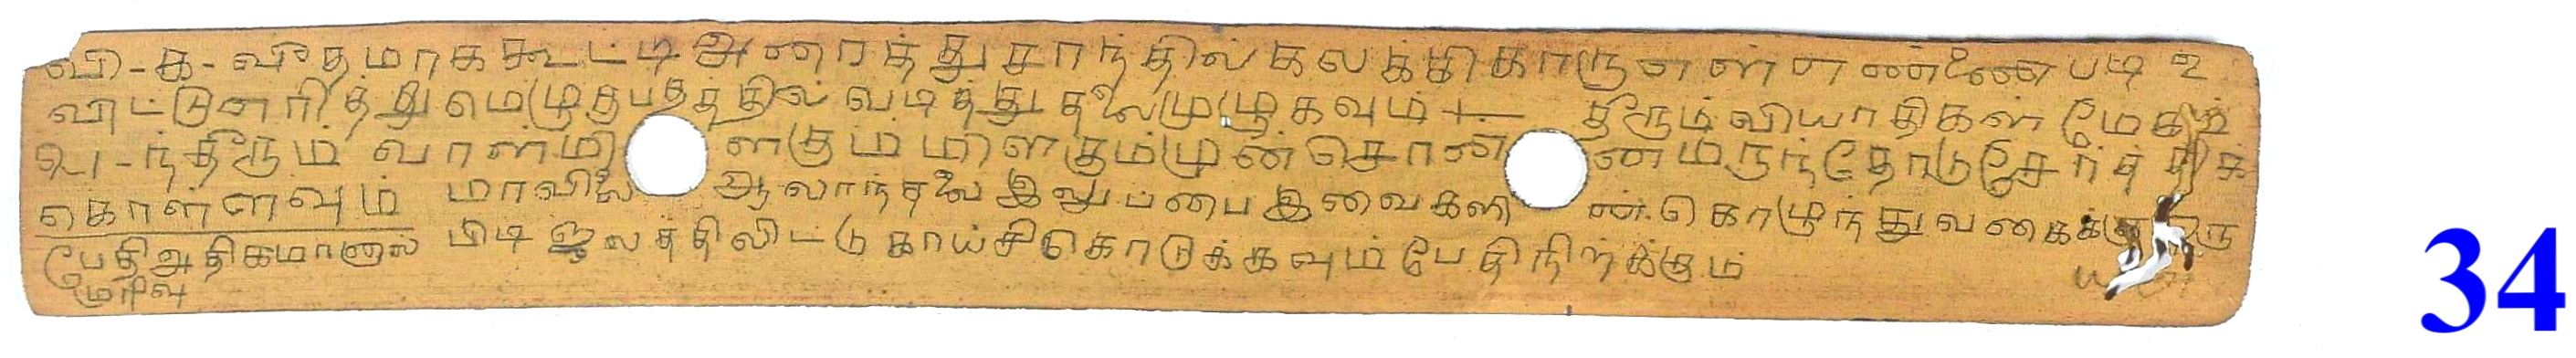 வி-க-வீதமாககூட்டிஅரைத்துசாந்தில்கலக்கிகாருஎள்எண்ணைபடிஉ
விட்டுஎரித்துமெழுகுபதத்தில்வடித்துதலைமுழுகவும்+ தீரும்வியாதிகள் மேகம்
௨௰-ந்தீரும் வால்மி ளகும் மிளகும்முன்சொன் னமருந்தோடுசேர்த்திக்
கொள்ளவும் மாவிலை ஆலாந்தலை இலுப்பை இவைகளி ன்கொழுந்துவகைக்குஒரு
பேதிஅதிகமானால் பிடி ஜலத்திலிட்டு காய்சிகொடுக்கவும் பேதிநிற்க்கும்
முரிவு
34